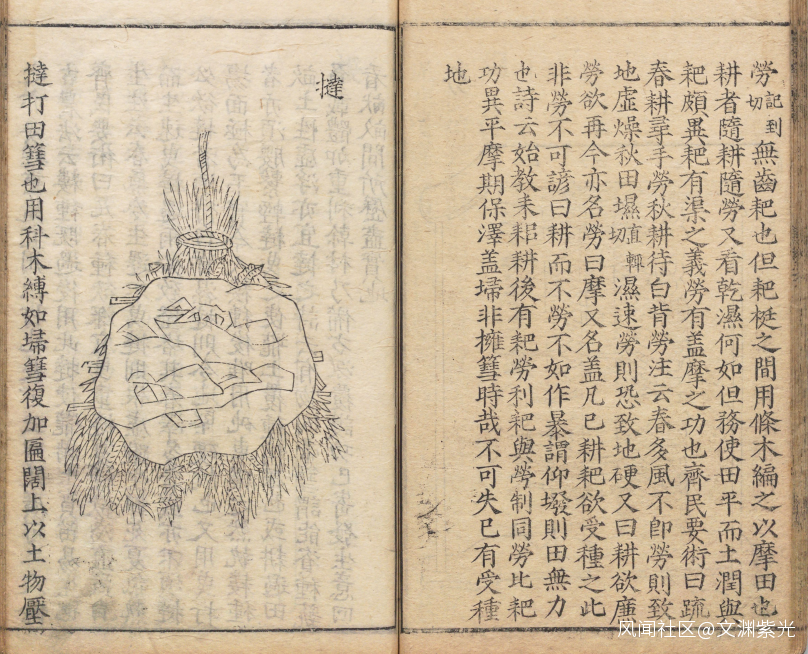 勞記到切無齒耙也但耙梃之間用條木編之以摩田也
耕者隨耕隨勞又看乾濕何如但務使田平而土潤與
耙頗異耙有渠之義勞有盖摩之功也齊民要術曰疏
春耕尋手勞秋耕待白背勞注云春多風不即勞則致
地虛燥秋田㙷直輒切濕速勞則恐致地硬又曰耕欲廉
勞欲再今亦名勞曰摩又名盖凡已耕耙欲受種之此
非勞不可諺曰耕而不勞不如作暴謂仰墢則田無力
也詩云始教耒耜耕後有耙勞利耙與勞制同勞比耙
功異平摩期保澤盖埽非擁篲時哉不可失已有受種
地
撻
撻打田篲也用科木縛如埽篲復加匾闊上以土物壓
风闻社区@文渊紫光